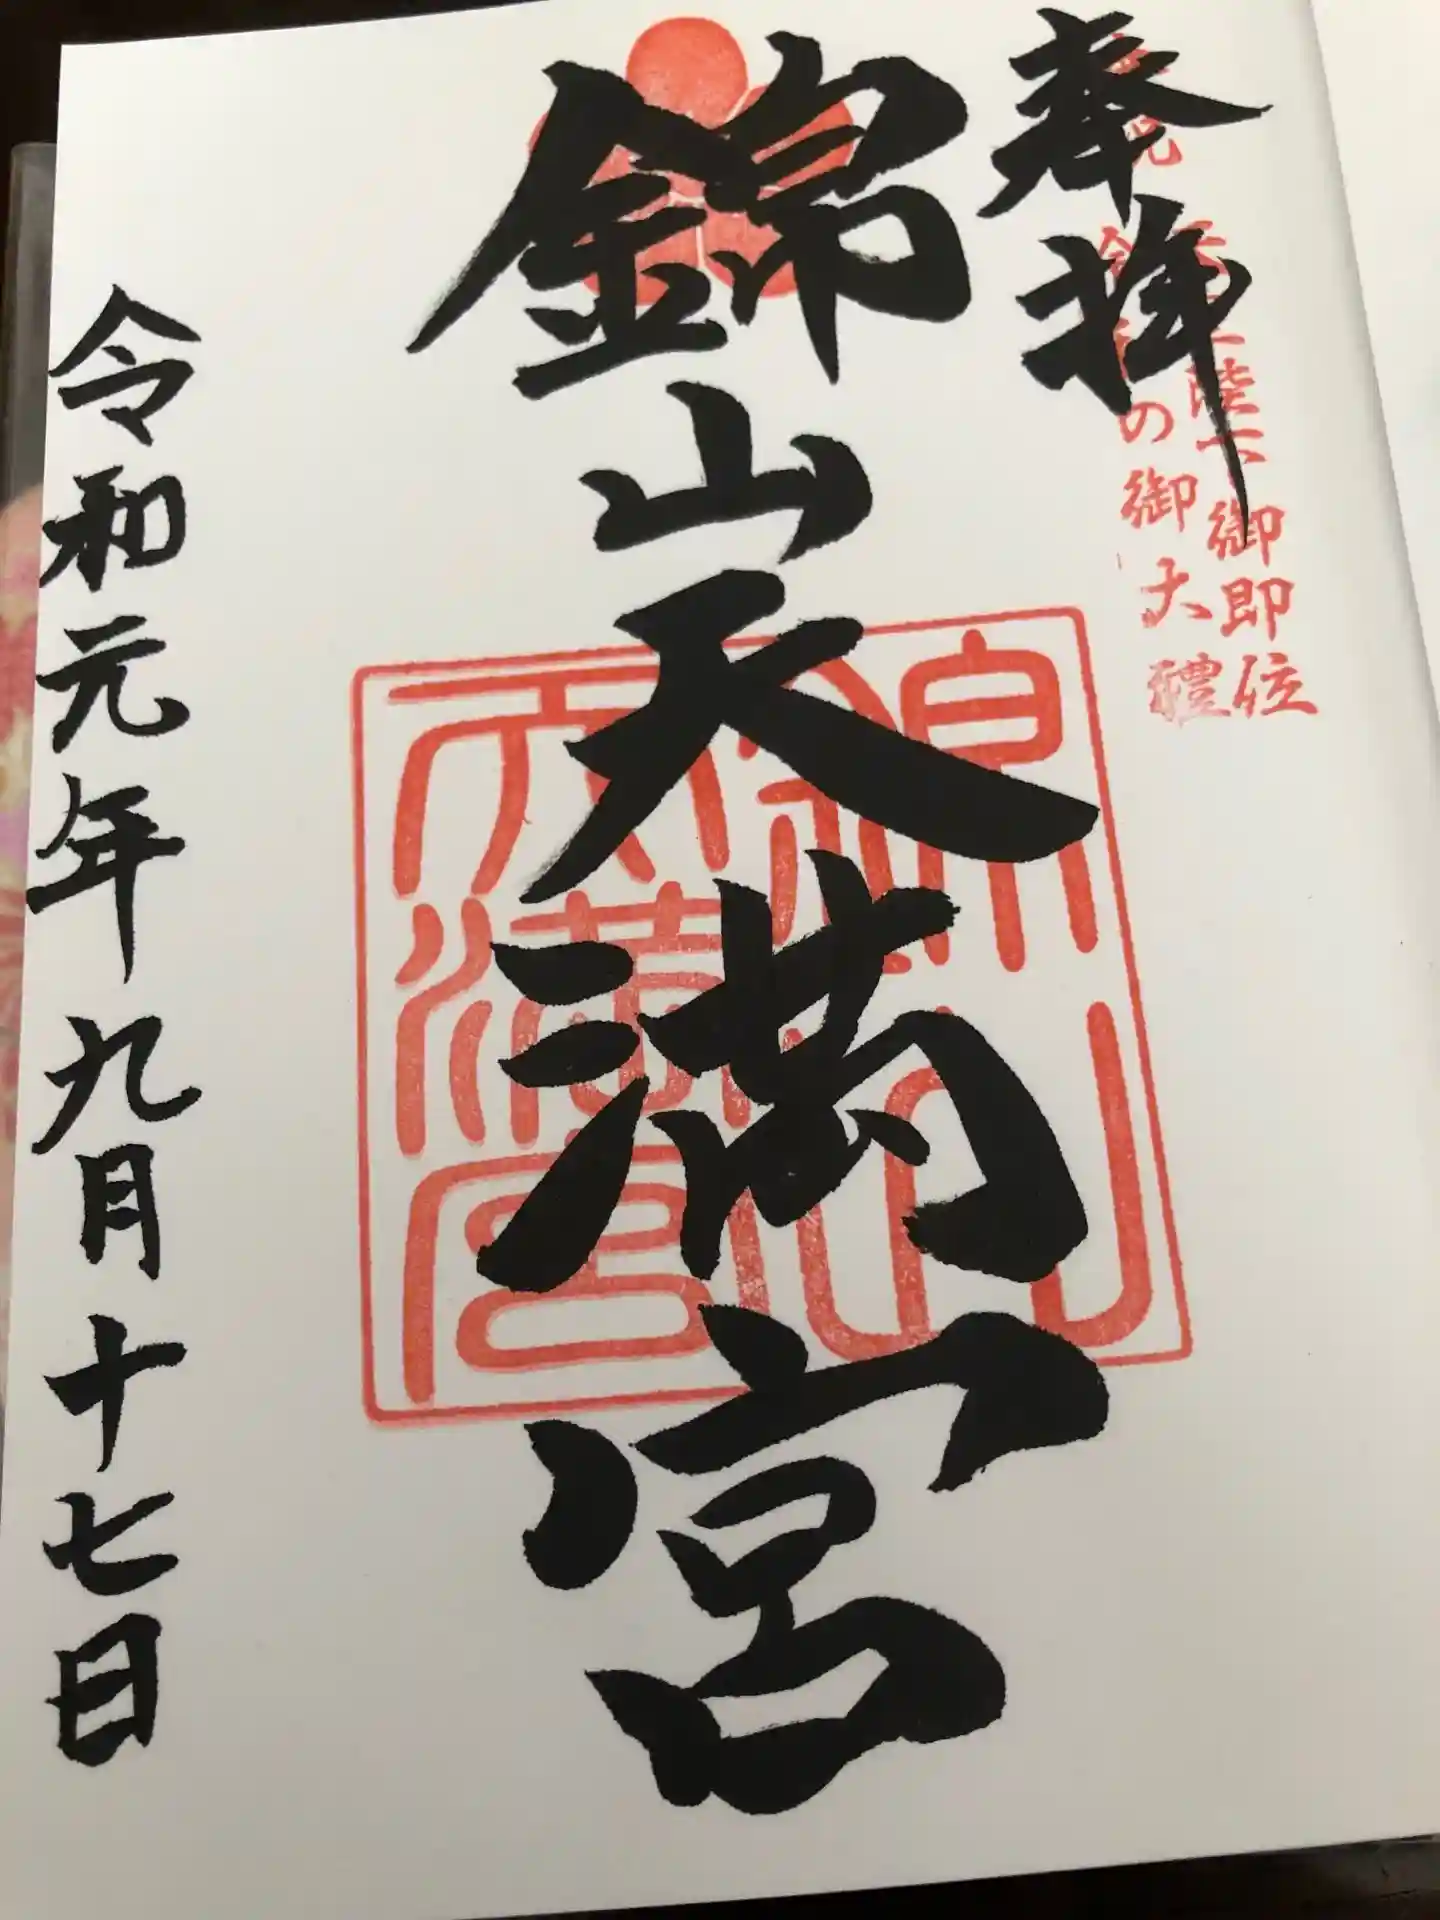 奉拝
陛下御即位
の御大禮
錦山天満宮
錦山天満宮
令和元年九月十七日